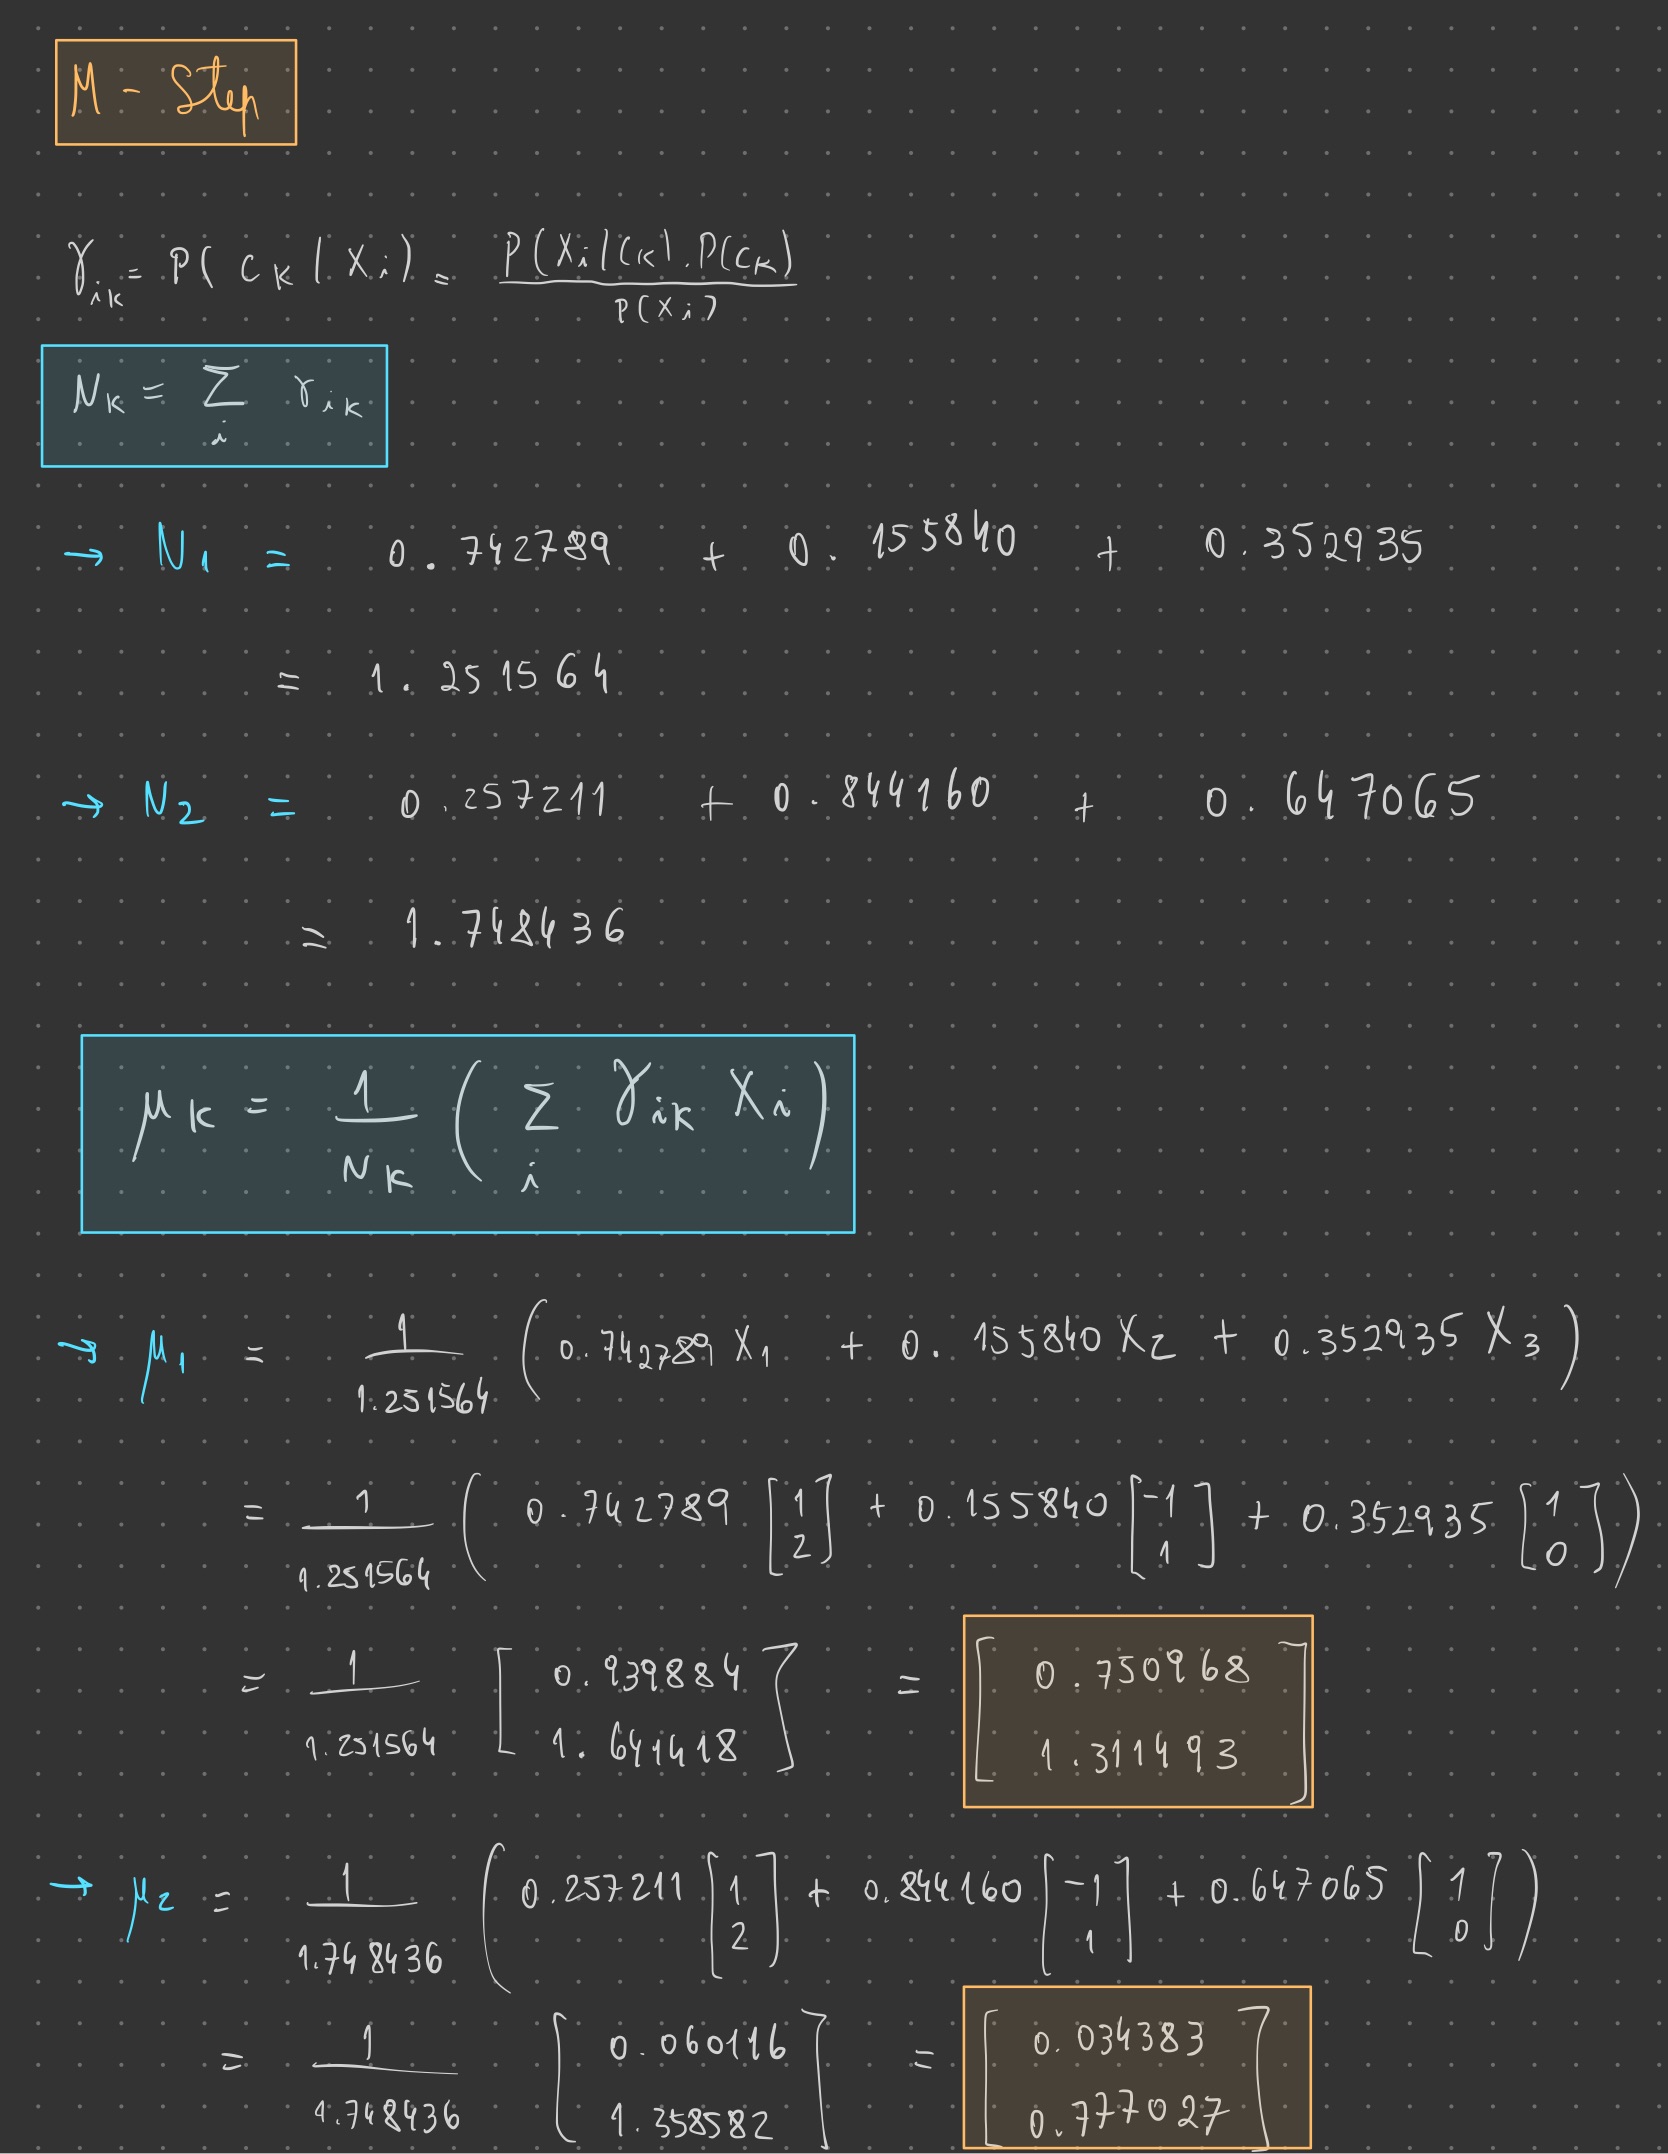 M - Step
γ_ik = P( c_K | X_i ) = P( X_i | C_K ) . P( C_K ) / P( X_i )
N_K = Σ_i γ_ik
→ N_1 = 0.742789 + 0.155840 + 0.352935
= 1.251564
→ N_2 = 0.257211 + 0.844160 + 0.647065
= 1.748436
μ_K = 1 / N_K ( Σ_i γ_ik X_i )
→ μ_1 = 1 / 1.251564 ( 0.742789 X_1 + 0.155840 X_2 + 0.352935 X_3 )
= 1 / 1.251564 ( 0.742789 [1 2] + 0.155840 [-1 1] + 0.352935 [1 0] )
= 1 / 1.251564 [0.939884 1.641418] = [0.750968 1.311493]
→ μ_2 = 1 / 1.748436 ( 0.257211 [1 2] + 0.844160 [-1 1] + 0.647065 [1 0] )
= 1 / 1.748436 [0.060116 1.358582] = [0.034383 0.777027]